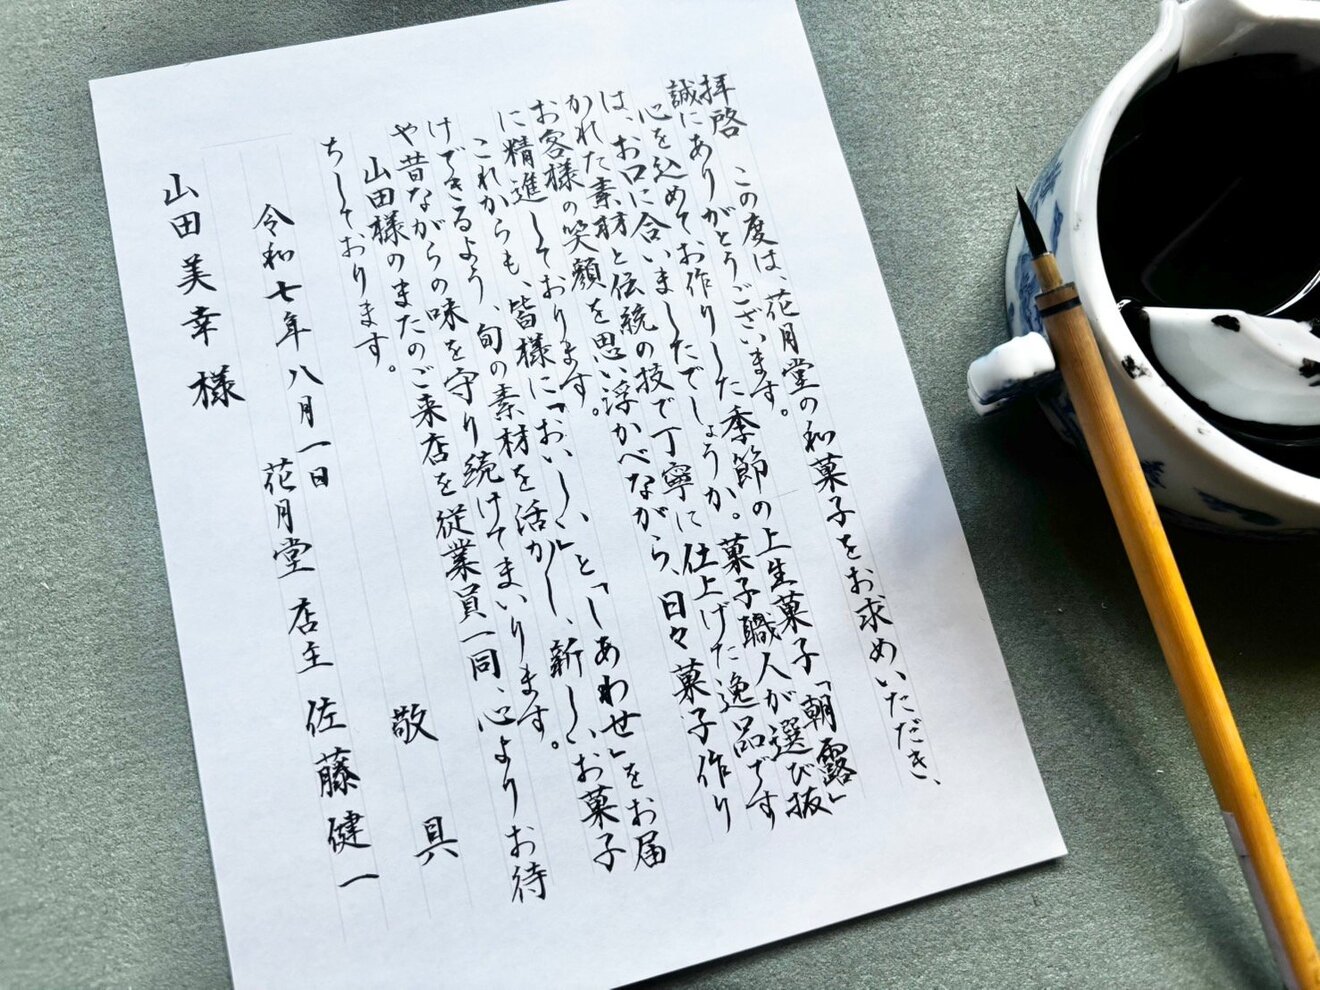 拝啓　この度は、花月堂の和菓子をお求めいただき、
誠にありがとうございます。
心を込めてお作りした季節の上生菓子「朝露」
は、お口に合いましたでしょうか。菓子職人が選び抜
かれた素材と伝統の技で丁寧に仕上げた逸品です
お客様の笑顔を思い浮かべながら、日々菓子作り
に精進しております。
これからも、皆様に「おいしい」と「しあわせ」をお届
けできるよう、旬の素材を活かし、新しいお菓子
や昔ながらの味を守り続けてまいります。
山田様のまたのご来店を従業員一同、心よりお待
ちしております。
敬具
令和七年八月一日
花月堂 店主 佐藤健一
山田美幸様